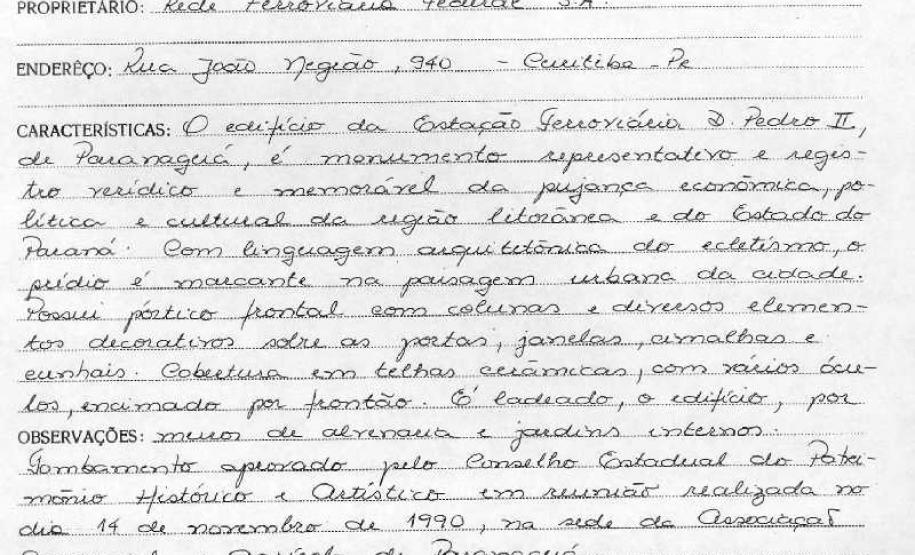 PROPRIETÁRIO: Rede Ferroviária Federal S.A.
ENDERÊÇO: Rua João Negrão, 940 - Curitiba - Pr
CARACTERÍSTICAS: O edifício da Estação Ferroviária D. Pedro II,
de Paranaguá, é monumento representativo e regis-
tro verídico e memorável da pujança econômica, po-
lítica e cultural da região litorânea e do Estado do
Paraná. Com linguagem arquitetônica do ecletismo, o
prédio é marcante na paisagem urbana da cidade.
Possui pórtico frontal com colunas e diversos elemen-
tos decorativos sobre as portas, janelas, cimalhas e
cunhais. Cobertura em telhas cerâmicas, com vários ócu-
los, encimado por frontão. É ladeado, o edifício, por
OBSERVAÇÕES: muros de alvenaria e jardins internos.
Tombamento aprovado pelo Conselho Estadual do Patri-
mônio Histórico e Artístico em reunião realizada no
dia 14 de novembro de 1990, na sede da Associação
de Paranaguá